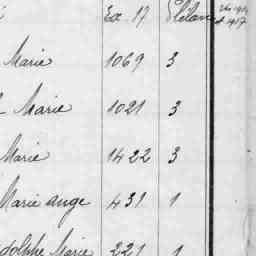 Ex. 17
Marie 1069 3
Marie 1021 3
Marie 1422 3
Marie ange 431 1
dolphe Marie 221 1